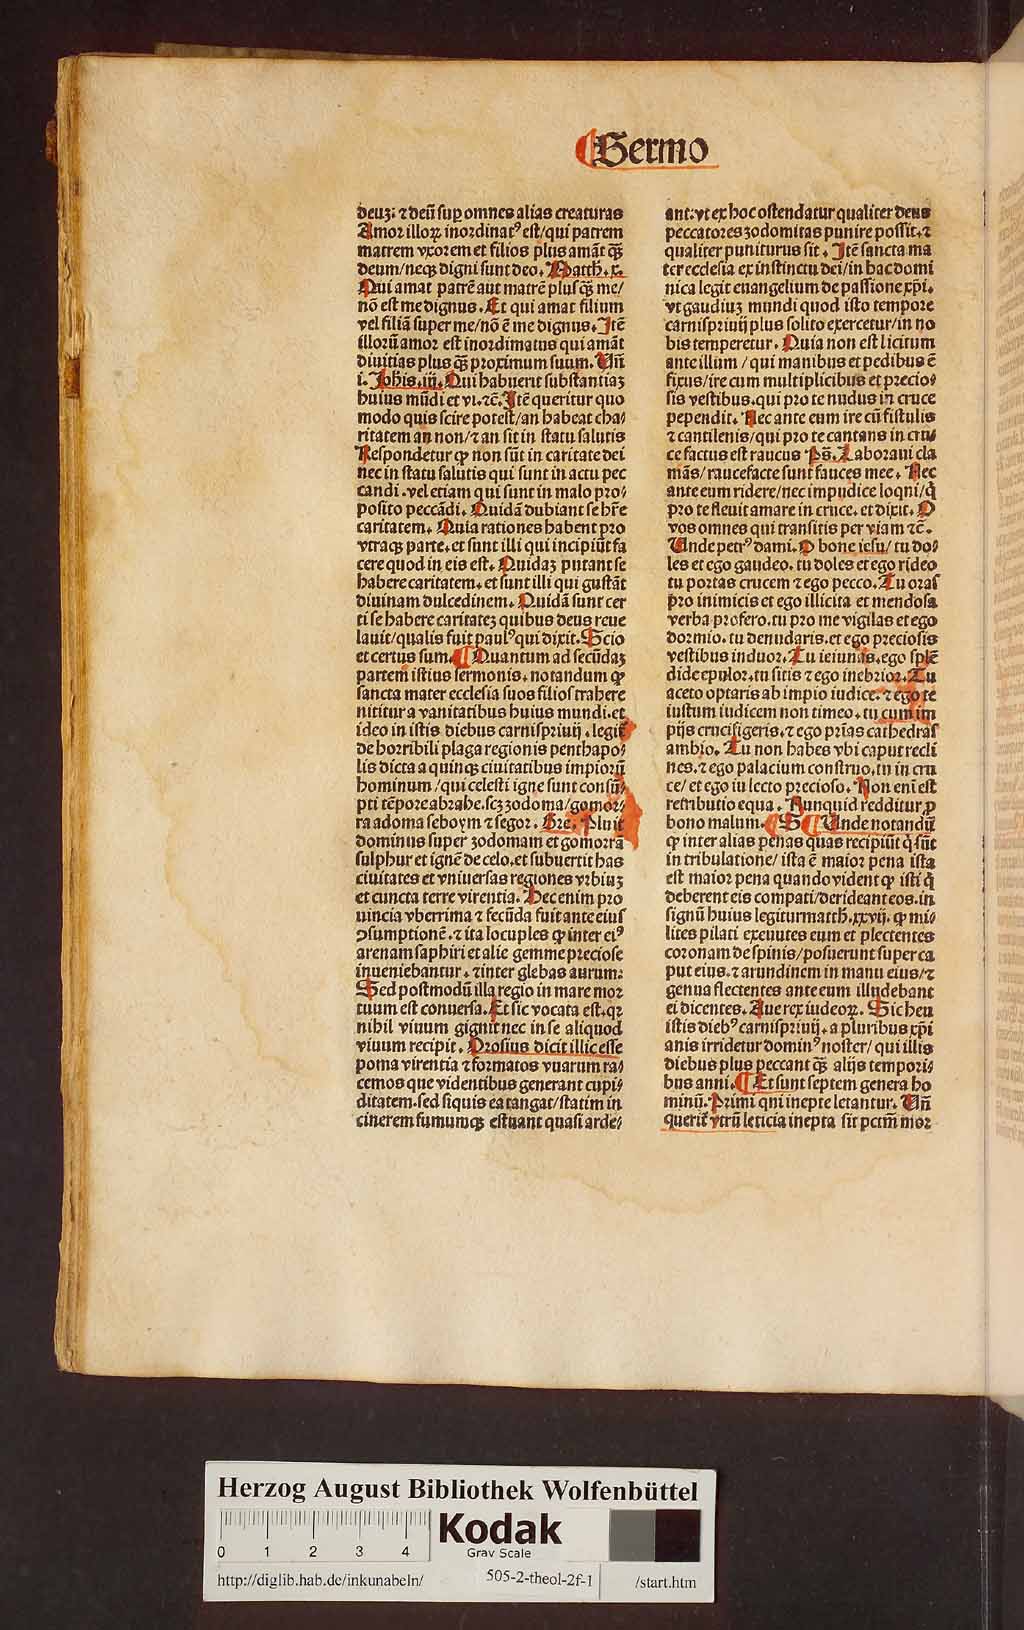 ¶Sermo
deuʒ: ⁊ deū sup omnes alias creaturas
Amor illoꝝ inordinatꝰ est/qui patrem
matrem vxorem et filios plus amāt qᷓꝫ
deum/neqꝫ digni sunt deo. Matth. x.
Qui amat patrē aut matrē plusqᷓꝫ me/
nō est me dignus. Et qui amat filium
vel filiā super me/nō ē me dignus. Itē
illorū amor est inordimatus qui amāt
diuitias plus qᷓꝫ proximum suum. Vñ
i. Johis. iij. Qui habuerit substantiaʒ
huius mūdi et vi. ⁊c̄. Itē queritur quo
modo quis scire potest/an habeat cha⸗
ritatem an non/⁊ an sit in statu salutis
Respondetur ꝙ non sūt in caritate dei
nec in statu salutis qui sunt in actu pec
candi. vel etiam qui sunt in malo pro⸗
posito peccādi. Quidā dubiant se hr̄e
caritatem. Quia rationes habent pro
vtraqꝫ parte. et sunt illi qui incipiūt fa
cere quod in eis est. Quidaʒ putant se
habere caritatem. et sunt illi qui gustāt
diuinam dulcedinem. Quidā sunt cer
ti se habere caritateʒ quibus deus reue
lauit/qualis fuit paulꝰ qui dixit. Scio
et certus sum. ¶ Quantum ad secūdaʒ
partem istius sermonis. notandum ꝙ
sancta mater ecclesia suos filios trahere
nititur a vanitatibus huius mundi. et
ideo in istis diebus carnispriuij. legit᷑
de horribili plaga regionis penthapo⸗
lis dicta a quinqꝫ ciuitatibus impiorū
hominum/qui celesti igne sunt consū⸗
pti tēpore abrahe. scʒ zodoma/gomor⸗
ra adoma seboym ⁊ segor. Gre. Pluit
dominus super zodomam et gomorra
sulphur et ignē de celo. et subuertit has
ciuitates et vniuersas regiones vrbiuʒ
et cuncta terre virentia. Hec enim pro
uincia vberrima ⁊ fecūda fuit ante eius
ꝯsumptionē. ⁊ ita locuples ꝙ inter eiꝰ
arenam saphiri et alie gemme preciose
inueniebantur. ⁊ inter glebas aurum:
Sed postmodū illa regio in mare mor
tuum est conuersa. Et sic vocata est. qꝛ
nihil viuum gignit nec in se aliquod
viuum recipit. Orosius dicit illic esse
poma virentia ⁊ formatos vuarum ra⸗
cemos que videntibus generant cupi⸗
ditatem. sed si quis ea tangat/statim in
cinerem fumumqꝫ estuant quasi arde⸗
ant: vt ex hoc ostendatur qualiter deus
peccatores zodomitas punire possit. ⁊
qualiter puniturus sit. Itē sancta ma
ter ecclesia ex instinctu dei/in hac domi
nica legit euangelium de passione xp̄i.
vt gaudiuʒ mundi quod isto tempore
carnispriuij plus solito exercetur/in no
bis temperetur. Quia non est licitum
ante illum/qui manibus et pedibus ē
fixus/ire cum multiplicibus et precio⸗
sis vestibus. qui pro te nudus in cruce
pependit. Nec ante eum ire cū fistulis
⁊ cantilenis/qui pro te cantans in cru⸗
ce factus est raucus Ps̄. Laboraui cla
mās/rauce facte sunt fauces mee. Nec
ante eum ridere/nec impudice loqui/q̇
pro te fleuit amare in cruce. et dixit. O
vos omnes qui transitis per viam ⁊c̄.
Unde petrꝰ dami. O bone iesu/tu do⸗
les et ego gaudeo. tu doles et ego rideo
tu portas crucem ⁊ ego pecco. Tu oras
pro inimicis et ego illicita et mendosa
verba profero. tu pro me vigilas et ego
dormio. tu denudaris. et ego preciosis
vestibus induor. Tu ieiunas. ego splē
dide epulor. tu sitis ⁊ ego inebrior. Tu
aceto optaris ab impio iudice. ⁊ ego te
iustum iudicem non timeo. tu cum im
pijs crucifigeris. ⁊ ego prīas cathedras
ambio. Tu non habes vbi caput recli
nes. ⁊ ego palacium construo. tu in cru
ce/et ego iu lecto precioso. Non eni est
retributio equa. Nunquid redditur ꝓ
bono malum. ¶ B ¶ Unde notandū
ꝙ inter alias penas quas recipiūt q̇ sūt
in tribulatione/ista ē maior pena ista
est maior pena quando vident ꝙ isti q̇
deberent eis compati/derideant eos. in
signū huius legitur matth. xxvij. ꝙ mi⸗
lites pilati exeuutes eum et plectentes
coronam de spinis/posuerunt super ca
put eius. ⁊ arundinem in manu eius/⁊
genua flectentes ante eum illudebant
ei dicentes. Aue rex iudeoꝝ. Sic heu
istis diebꝰ carnispriuij. a pluribus xp̄i
anis irridetur dominꝰ noster/qui illis
diebus plus peccant qᷓꝫ alijs tempori⸗
bus anni. ¶ Et sunt septem genera ho
minū. Primi qni inepte letantur. Vñ
querit᷑ vtrū leticia inepta sit pctm̄ mor
Herzog August Bibliothek Wolfenbüttel
0 1 2 3 4
Kodak
Gray Scale
http://diglib.hab.de/inkunabeln/ 505-2-theol-2f-1 /start.htm